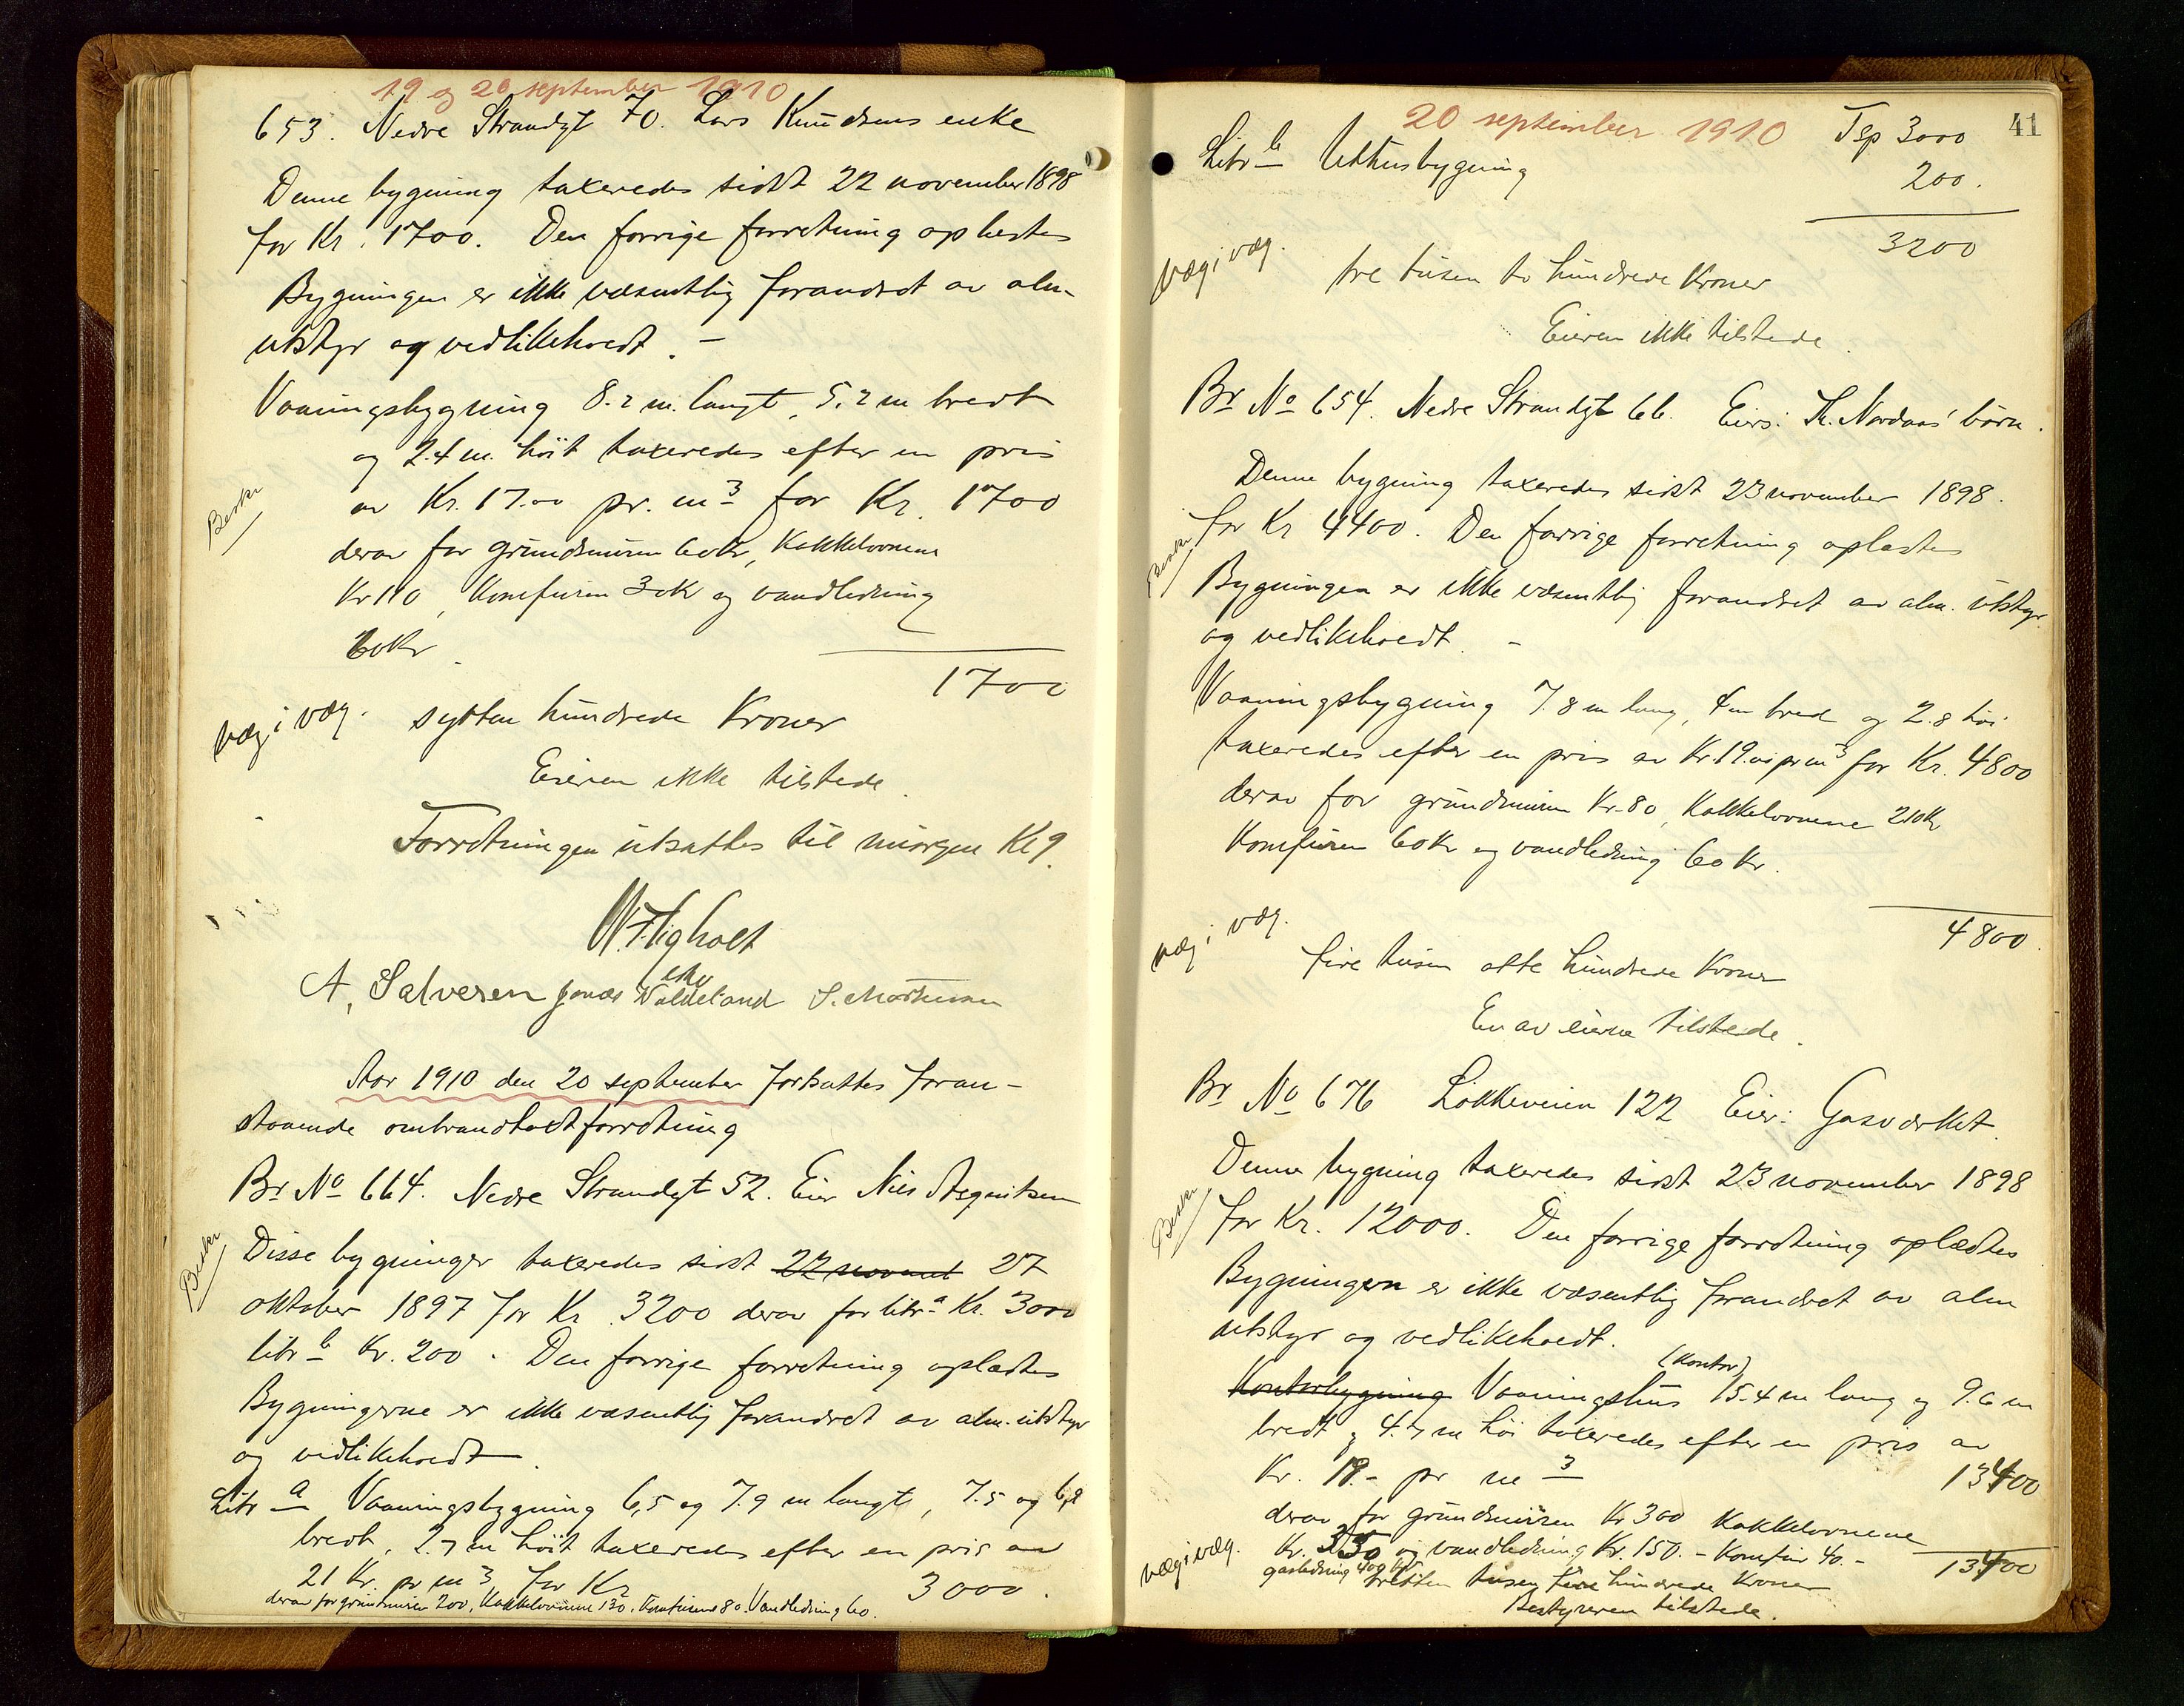 19 og 20 september 1910
653. Nedre Strandgt 70. Lars Knudsens enke
Denne bygning taxeredes sidst 22 november 1898
for Kr. 1700. Den forrige forretning oplæstes
Bygningen er ikke væsentlig forandret av alm.
utstyr og vedlikeholdt. –
Vaaningsbygning 8.2 m. langt, 5.2 m bredt
og 2.4 m. høit taxeredes efter en pris
Beskr
av Kr. 17.00 pr. m3 for Kr. 1700
derav for grundmuren 60 kr, Kakkelovnene
Kr 110, Komfuren 30 Kr og vandledning
60 Kr.
1700
væg i væg. sytten hundrede Kroner
Eieren ikke tilstede.
Forretningen utsattes til imorgen Kl 9.
A. Salvesen Jonas Waldeland S. Mortensen
Aar 1910 den 20 september fortsattes foran-
staaende ombrandtaxtforretning
Br No 664. Nedre Strandgt 52. Eier Nils Aagesen
Beskr
Disse bygninger taxeredes sidst 22 novemb 27
oktober 1897 for Kr 3200 derav for litr a Kr. 3000
litr b Kr. 200. Den forrige forretning oplæstes
Bygningerne er ikke væsentlig forandret av alm. utstyr
og vedlikeholdt.
Litr a Vaaningsbygning 6,5 og 7.9 m langt, 7.5 og 6,2
bredt, 2.7 m høit taxeredes efter en pris av
21 Kr. pr m3 for Kr 3000.
derav for grundmuren 200, Kakkelovnene 130, Komfurene 80. Vandledning 60.
20 september 1910
41
Tsp 3000
Litr b Uthusbygning
200.
3200
væg i væg.
tre tusen to hundrede Kroner
Eieren ikke tilstede.
Br No 654. Nedre Strandgt 66. Eiers: Th. Nordaas' børn.
Denne bygning taxeredes sidst 23 november 1898.
Beskr
for Kr 4400. Den forrige forretning oplæstes
Bygningen er ikke væsentlig forandret av alm. utstyr
og vedlikeholdt. –
Vaaningsbygning 7.8 m lang, 4 m bred og 2.8 høi
taxeredes efter en pris av Kr. 19.00 pr m3 for Kr. 4800
derav for grundmuren Kr. 80, Kakkelovnene 210 Kr
Komfuren 60 Kr og vandledning 60 Kr.
4800.
væg i væg.
fire tusen otte hundrede Kroner
En av eierne tilstede.
Br No 676 Løkkeveien 122 Eier: Gasværket.
Denne bygning taxeredes sidst 23 november 1898
Beskr
for Kr. 12000. Den forrige forretning oplæstes
Bygningen er ikke væsentlig forandret av alm
utstyr og vedlikeholdt.
(Kontor)
Kontorbygning Vaaningshus 15.4 m lang og 9.6 m
bredt og 4.7 m høi taxeredes efter en pris av
Kr. 19.- pr m3 13400
derav for grundmuren Kr 300 Kakkelovnene
Kr. 350 og vandledning Kr. 150. - Komfur 40. -
væg i væg.
13400
gasledning 400 Kr.
tretten tusen fire hundrede Kroner
Bestyreren tilstede.